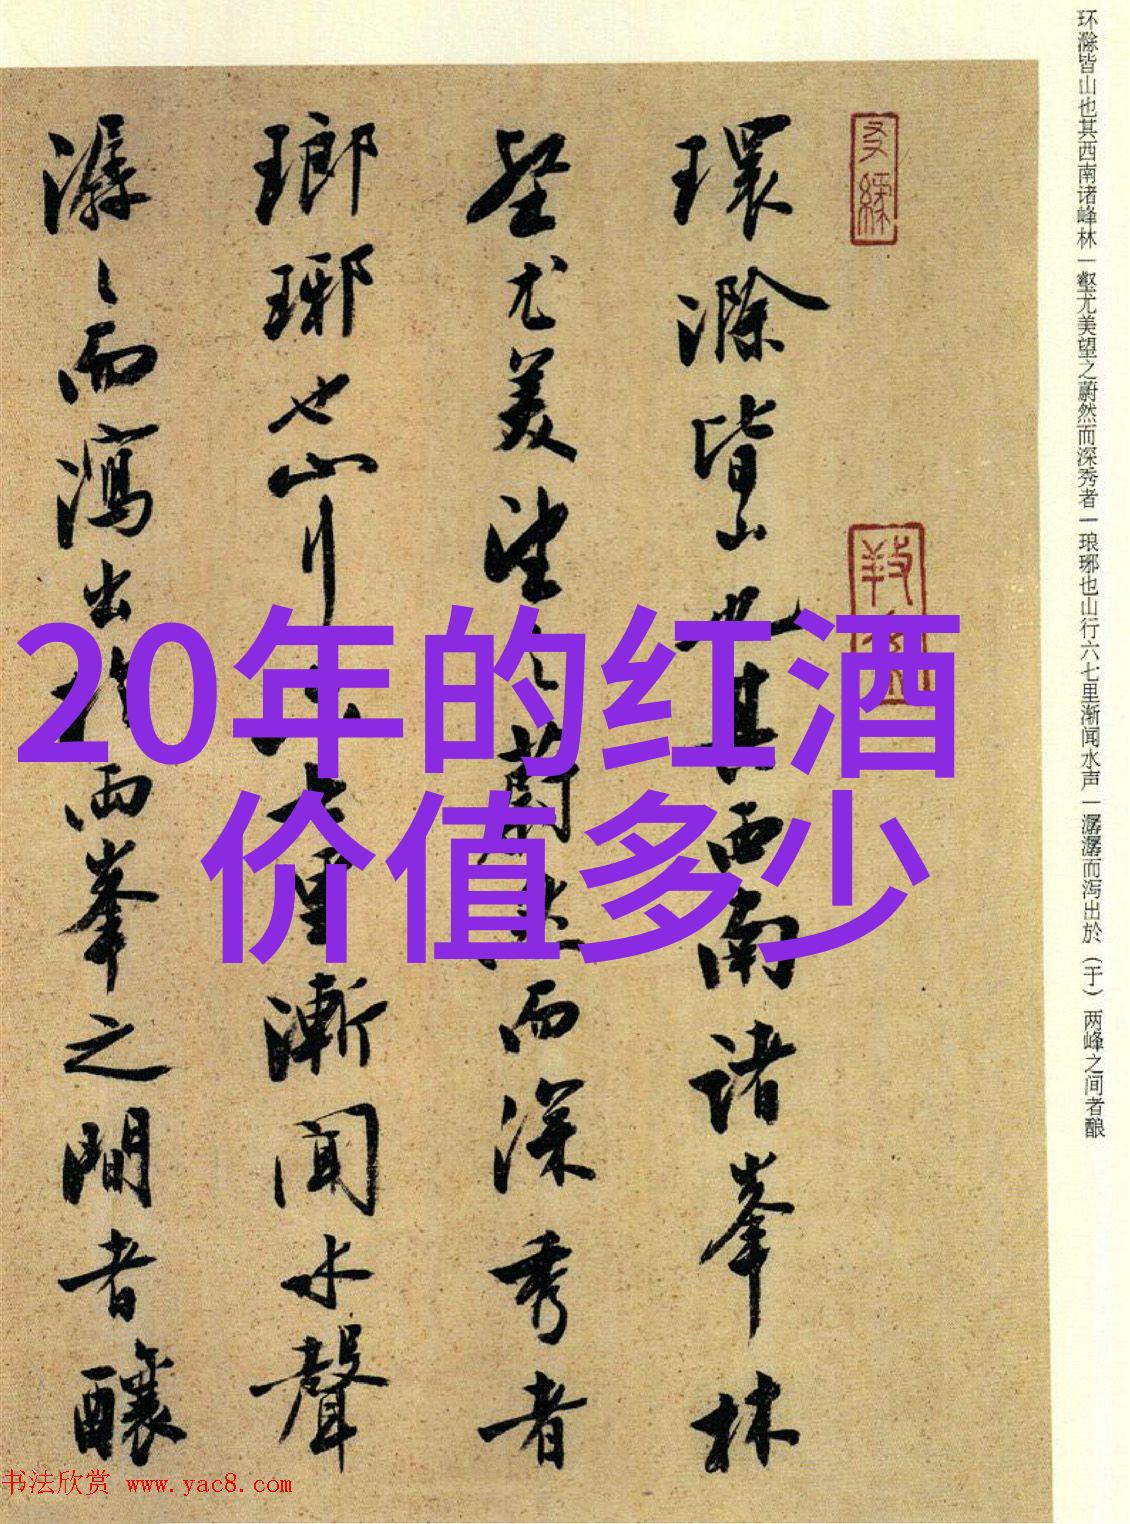 20年的红酒
价值多少
环滁皆山也其西南诸峰林一壑尤美望之蔚然而深秀者一琅琊也山行六七里渐闻水声一潺潺而泻出於（于）两峰之间者酿
環滁皆山也其西南諸峯林
壑尤美望之蔚然而深秀者
瑯琊也山行六七里漸聞水聲
潺〻而瀉出於兩峯之間者釀
书法欣赏 www.yac8.com